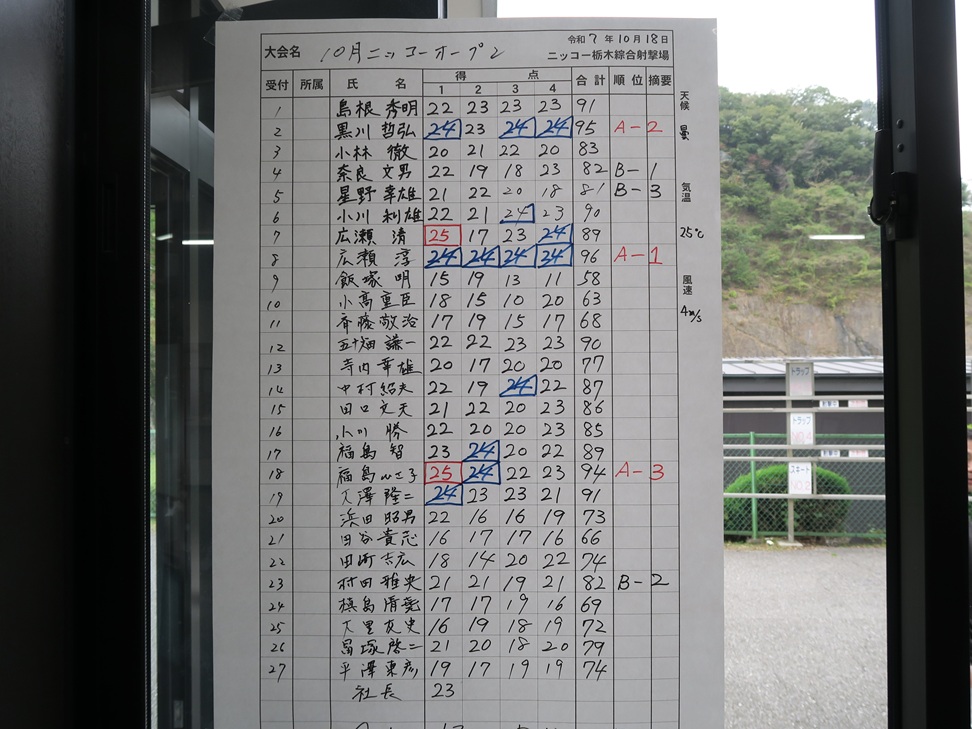 令和7年10月18日
大会名 10月ニッコーオープン ニッコー栃木綜合射撃場
受付 所属 氏名 得点 合計 順位 摘要
1 2 3 4
1 島根 秀明 22 23 23 23 91
2 黒川 哲弘 24 23 24 24 95 A-2
3 小林 徹 20 21 22 20 83
4 奈良 文男 22 19 18 23 82 B-1
5 星野 幸雄 21 22 20 18 81 B-3
6 小川 利雄 22 21 24 23 90
7 広瀬 清 25 17 23 24 89
8 広瀬 淳 24 24 24 24 96 A-1
9 飯塚 明 15 19 13 11 58
10 小高 重臣 18 15 10 20 63
11 斉藤 敬治 17 19 15 17 68
12 五十畑 謙一 22 22 23 23 90
13 寺内 幸雄 20 17 20 20 77
14 中村 紹夫 22 19 24 22 87
15 田口 文夫 21 22 20 23 86
16 小川 勝 22 20 20 23 85
17 福島 智 23 24 20 22 89
18 福島 25 24 22 23 94 A-3
19 大澤 隆二 24 23 23 21 91
20 浜田 昭男 22 16 16 19 73
21 田谷 貴志 16 17 17 16 66
22 田町 吉広 18 14 20 22 74
23 村田 雅央 21 21 19 21 82 B-2
24 槙島 17 17 19 16 69
25 大里 友史 16 19 18 19 72
26 啓二 21 20 18 20 79
27 平澤 東彦 19 17 19 19 74
社長 23
天候
曇
気温
25℃
風速
4m/s
トラップ
トラップ
スキート